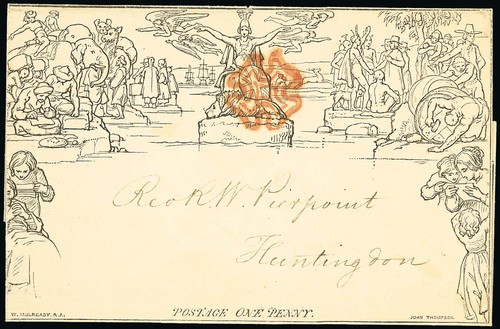 Revd R. W. Pierpoint
Huntingdon
W. MULREADY. R.A.
POSTAGE ONE PENNY.
JOHN THOMPSON.